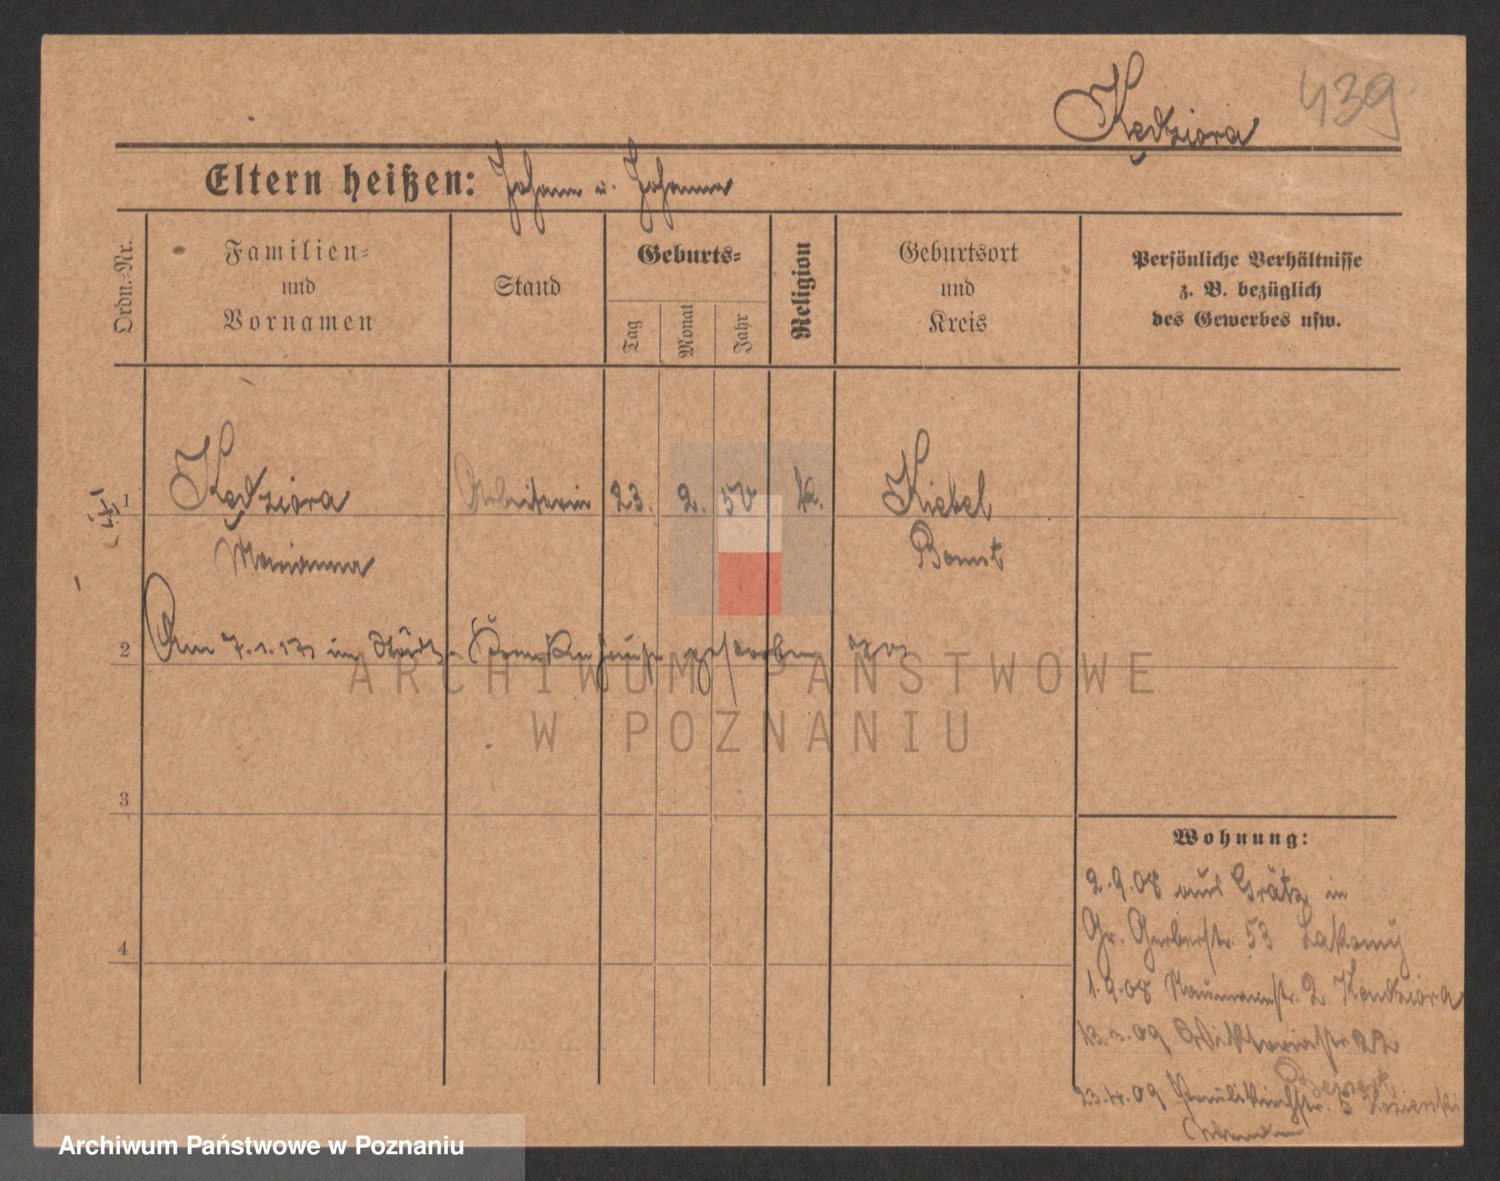 Kędziora 439
Eltern heißen: Johann u. Johanna
Ordn.-Nr.
Familien-
und
Vornamen
Stand
Geburts-
Tag
Monat
Jahr
Religion
Geburtsort
und
Kreis
Persönliche Verhältnisse
z. B. bezüglich
des Gewerbes usw.
1 Kędziora Arbeiterin 23. 2. 52 k. Kiebel
Marianna Bomst
2 Am 7.1.17 im Städt. Krankenhause gestorben
ARCHIWUM PAŃSTWOWE
W POZNANIU
3
Wohnung:
2.9.08 aus Grätz in
4
Gr. Gerberstr. 53 Lakomy
1.9.08 Naumannstr. 2 Kendziora
13.3.09 Viktoriastr 22
23.4.09 Paulikirchstr. 5
Archiwum Państwowe w Poznaniu